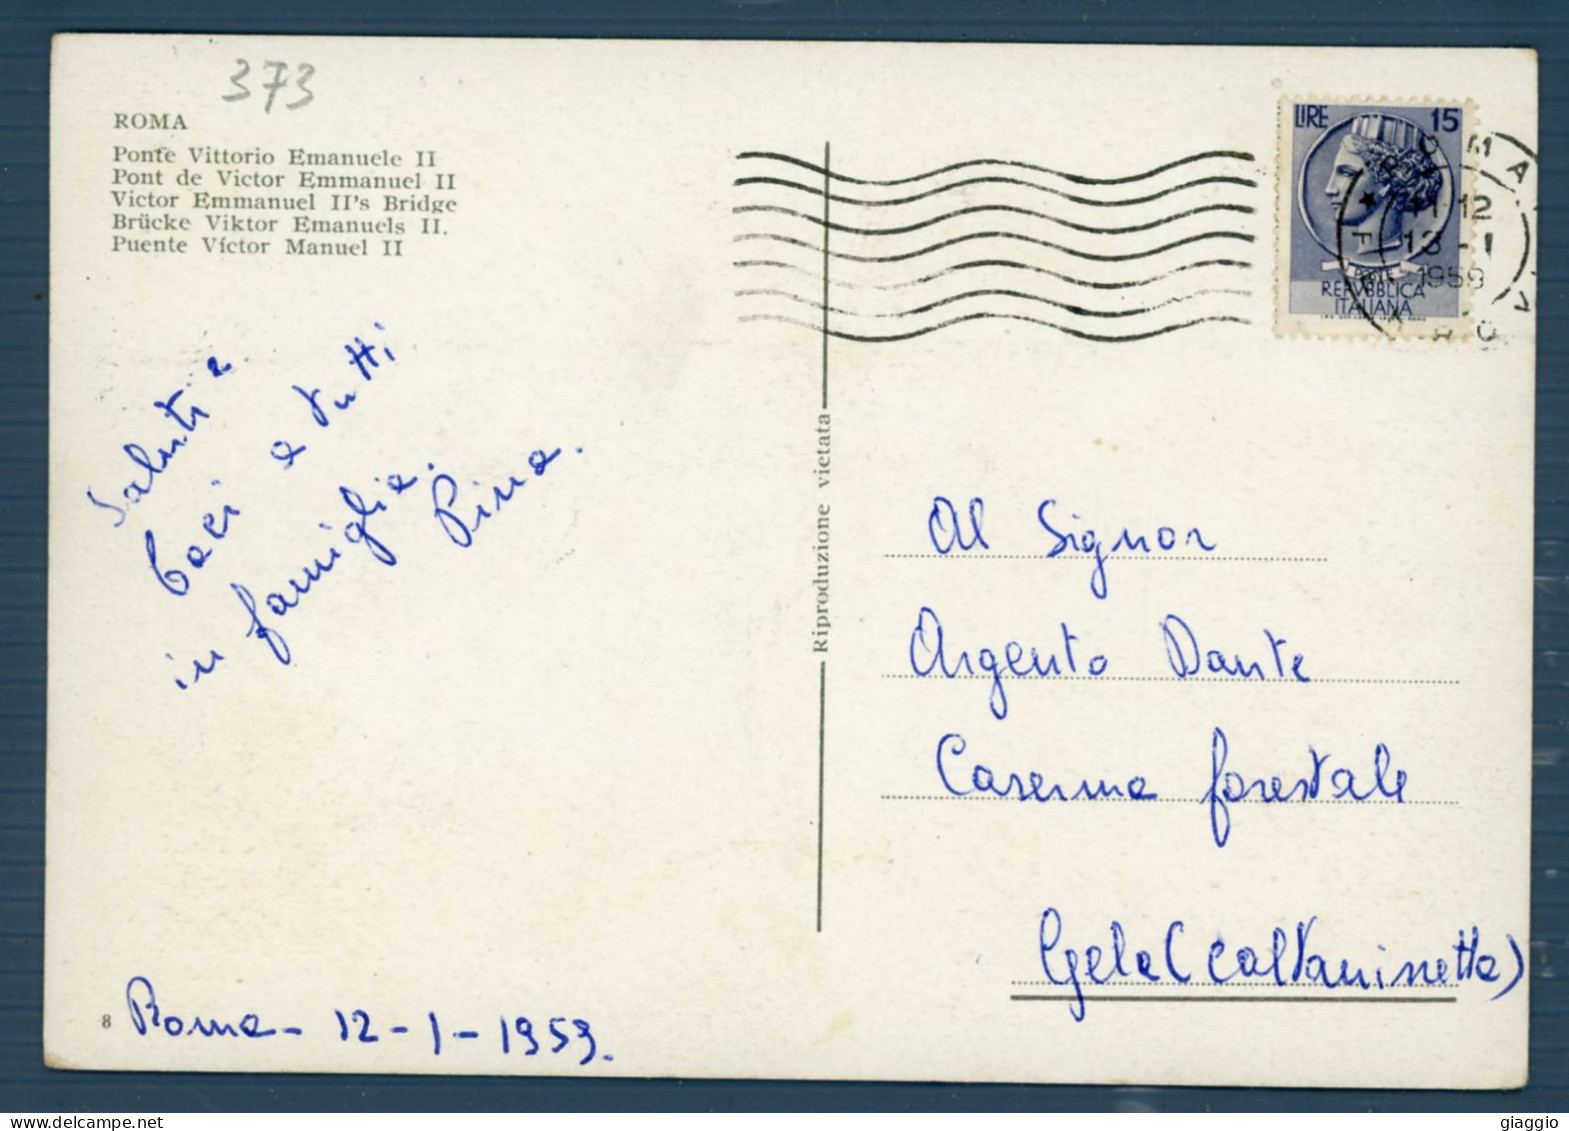 373
ROMA
Ponte Vittorio Emanuele II
Pont de Victor Emmanuel II
Victor Emmanuel II's Bridge
Brücke Viktor Emanuels II.
Puente Víctor Manuel II
LIRE 15
ROMA
11-12
13-1
1959
POSTE
REPVBBLICA
ITALIANA
Saluti e
baci a tutti
in famiglia.
Pina.
Riproduzione vietata
Al Signor
Argento Dante
Caserma forestale
Gela (Caltaninetta)
8
Roma - 12-1-1959.
giaggio